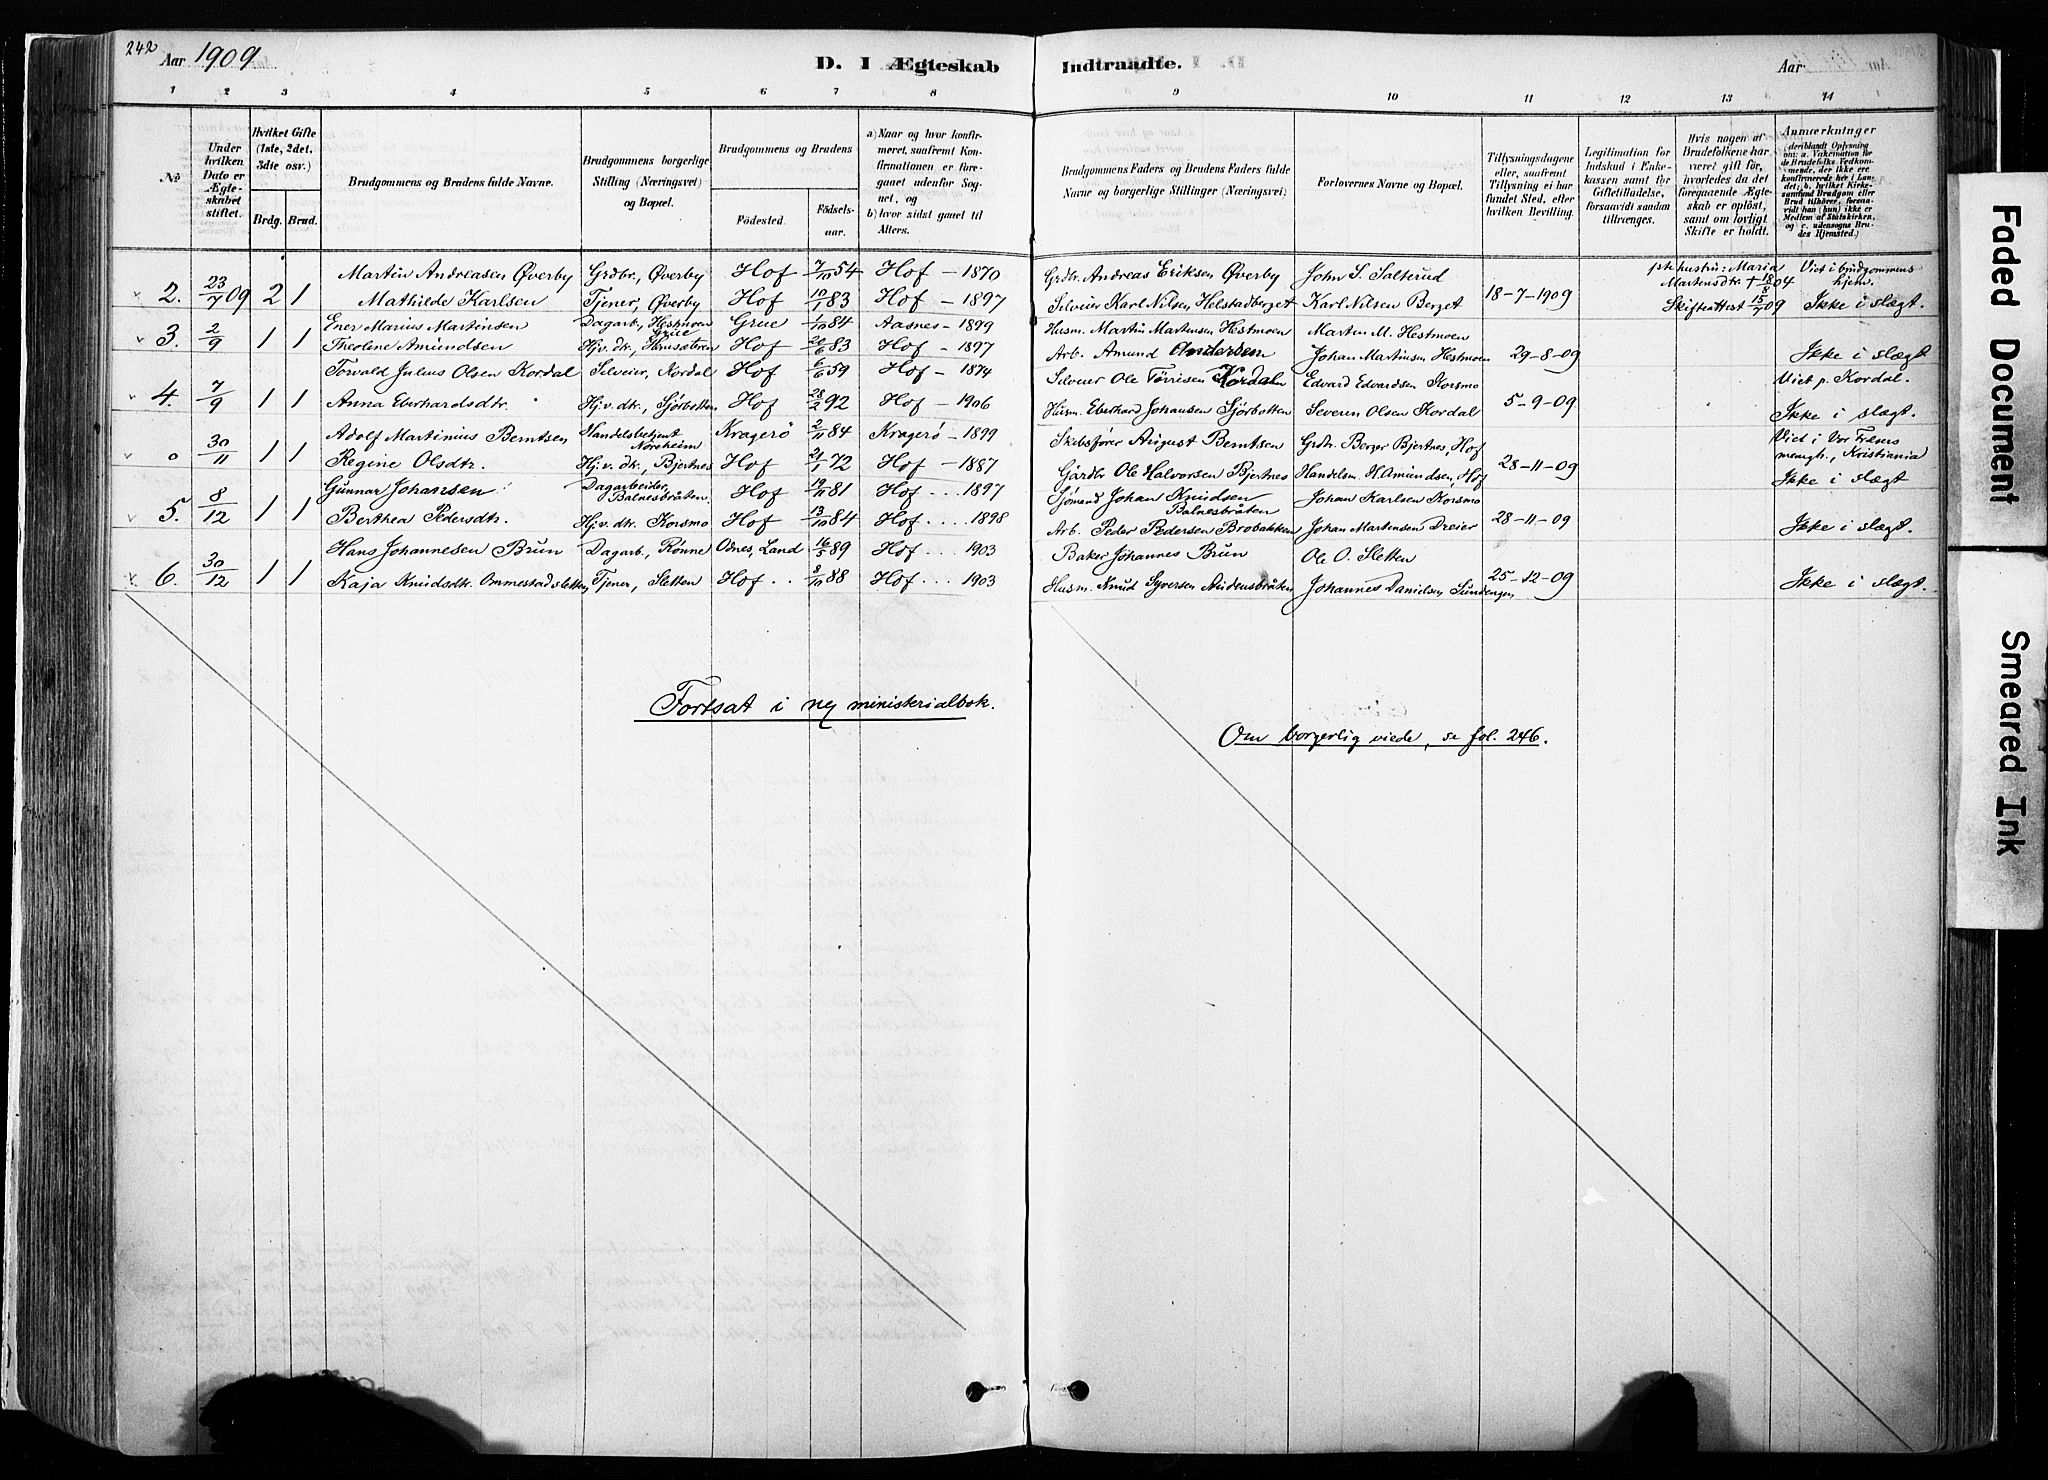 242
Aar 1909
D. I Ægteskab Indtraadte.
Aar
1 2 3 4 5 6 7 8 9 10 11 12 13 14
No
Under hvilken Dato er Ægteskabet stiftet.
Hvilket Gifte (1ste, 2det, 3die osv.)
Brdg. Brud.
Brudgommens og Brudens fulde Navne.
Brudgommens borgerlige Stilling (Næringsvei) og Bopæl.
Brudgommens og Brudens
Födested.
Födselsaar.
a) Naar og hvor konfirmeret, saafremt Konfirmationen er foregaaet udenfor Sognet, og
b) hvor sidst gaaet til Alters.
Brudgommens Faders og Brudens Faders fulde Navne og borgerlige Stillinger (Næringsvei)
Forlovernes Navne og Bopæl.
Tillysningsdagene eller, saafremt Tillysning ei har fundet Sted, efter hvilken Bevilling.
Legitimation for Indskud i Enkekassen samt for Giftetilladelse, forsaavidt saadan tiltrænges.
Hvis nogen af Brudefolkene har været gift för, hvorledes da det foregaaende Ægteskab er oplöst, samt om lovligt Skifte er holdt.
Anmærkninger (deriblandt Oplysning om: a. Vakcination for de Brudefolks Vedkommende, der ikke ere konfirmerede her i Landet; b. hvilket Kirkesamfund Brudgom eller Brud tilhörer, forsaavidt han (hun) ikke er Medlem af Statskirken, og c. udensogns Brudes Hjemsted.)
Martin Andreasen Øverby Grdbr., Øverby Hof 7/10 54 Hof – 1870 Grdbr. Andreas Eriksen Øverby John S. Salterud hustru: Maria Viet i brudgommens hjem.
2. 23/7 09 2 1 Mathilde Karlsen Tjener, Øverby Hof 10/1 83 Hof – 1897 Selveier Karl Nilsen, Helstadberget Karl Nilsen Berget 18-7-1909 Martensdtr. † 18/8 04
Skifteattest 15/7 09 Ikke i slægt.
Ener Marius Martinsen Dagarb., Hestmoen Grue Grue 1/10 84 Aasnes – 1899 Husm. Martin Martensen Hestmoen Marten M. Hestmoen
3. 2/9 1 1 Theoline Amundsen Hj.v. dtr., Hornsæteren Hof 20/6 83 Hof – 1897 Arb. Amund Andersen Johan Martinsen Hestmoen 29-8-09 Ikke i slægt
Torvald Julius Olsen Kordal Selveier, Kordal Hof 6/6 59 Hof – 1874 Selveier Ole Tørrisen Kordalen Edvard Edvardsen Korsmo Viet p. Kordal.
4. 7/9 1 1 Anna Eberhardsdtr. Hj.v. dtr., Sjørbotten Hof 28/2 92 Hof – 1906 Husm. Eberhard Johansen Sjørbotten Severin Olsen Kordal 5-9-09 Ikke i slægt.
Adolf Martinius Berntsen Handelsbetjent Norsheim Kragerö 2/11 84 Kragerö – 1899 Skibsfører August Berntsen Grdbr. Berger Bjertnes, Hof Viet i Vor Frelsers
0 30/11 1 1 Regine Olsdtr. Hj.v. dtr., Bjertnes Hof 21/1 72 Hof – 1887 Gårdbr. Ole Halvorsen Bjertnes Handelsm. H. Amundsen, Hof 28-11-09 menigh., Kristiania
Ikke i slægt
Gunnar Johansen Dagarbeider, Balnesbråten Hof 19/11 81 Hof . . . 1897 Sjømand Johan Knudsen Balnesbråten Johan Karlsen Korsmo
5. 8/12 1 1 Berthea Pedersdtr. Hj.v. dtr. Korsmo Hof 13/10 84 Hof . . . . 1898 Arb. Peder Pedersen Brobakken Johan Martensen Dreier 28-11-09 Ikke i slægt.
Hans Johannesen Brun Dagarb., Rönne Odnes, Land 16/5 89 Hof . . . 1903 Baker Johannes Brun Ole O. Sletten
6. 30/12 1 1 Kaja Knudsdtr. Ommestadsletten Tjener, Sletten Hof . . 8/10 88 Hof . . . . 1903 Husm. Knud Syversen Audensbråten Johannes Danielsen Sundengen 25-12-09 Ikke i slægt.
Fortsat i ny ministerialbok.
Om borgerlig viede, se fol. 246.
Faded Document
Smeared Ink